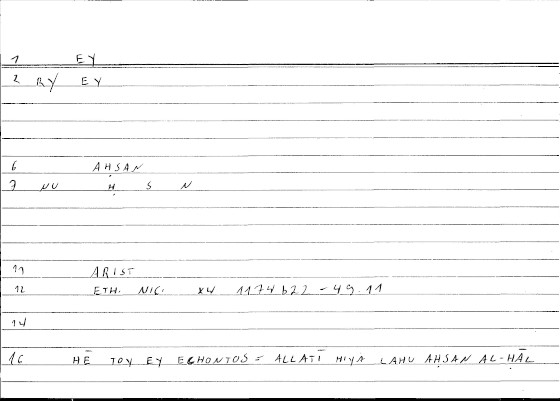 1 EY
2 RY EY
6 AḤSAN
7 NU Ḥ S N
11 ARIST
12 ETH. NIC. X4 1174b22 - 49.11
14
16 HĒ TOY EY ECHONTOS = ALLATĪ HIYA LAHU AḤSAN AL-ḤĀL